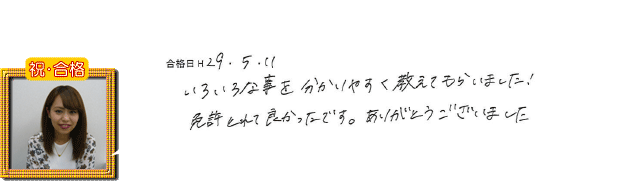 合格日 H 29.5.11
祝・合格
いろいろな事を分かりやすく教えてもらいました!
免許とれて良かったです。ありがとうございました